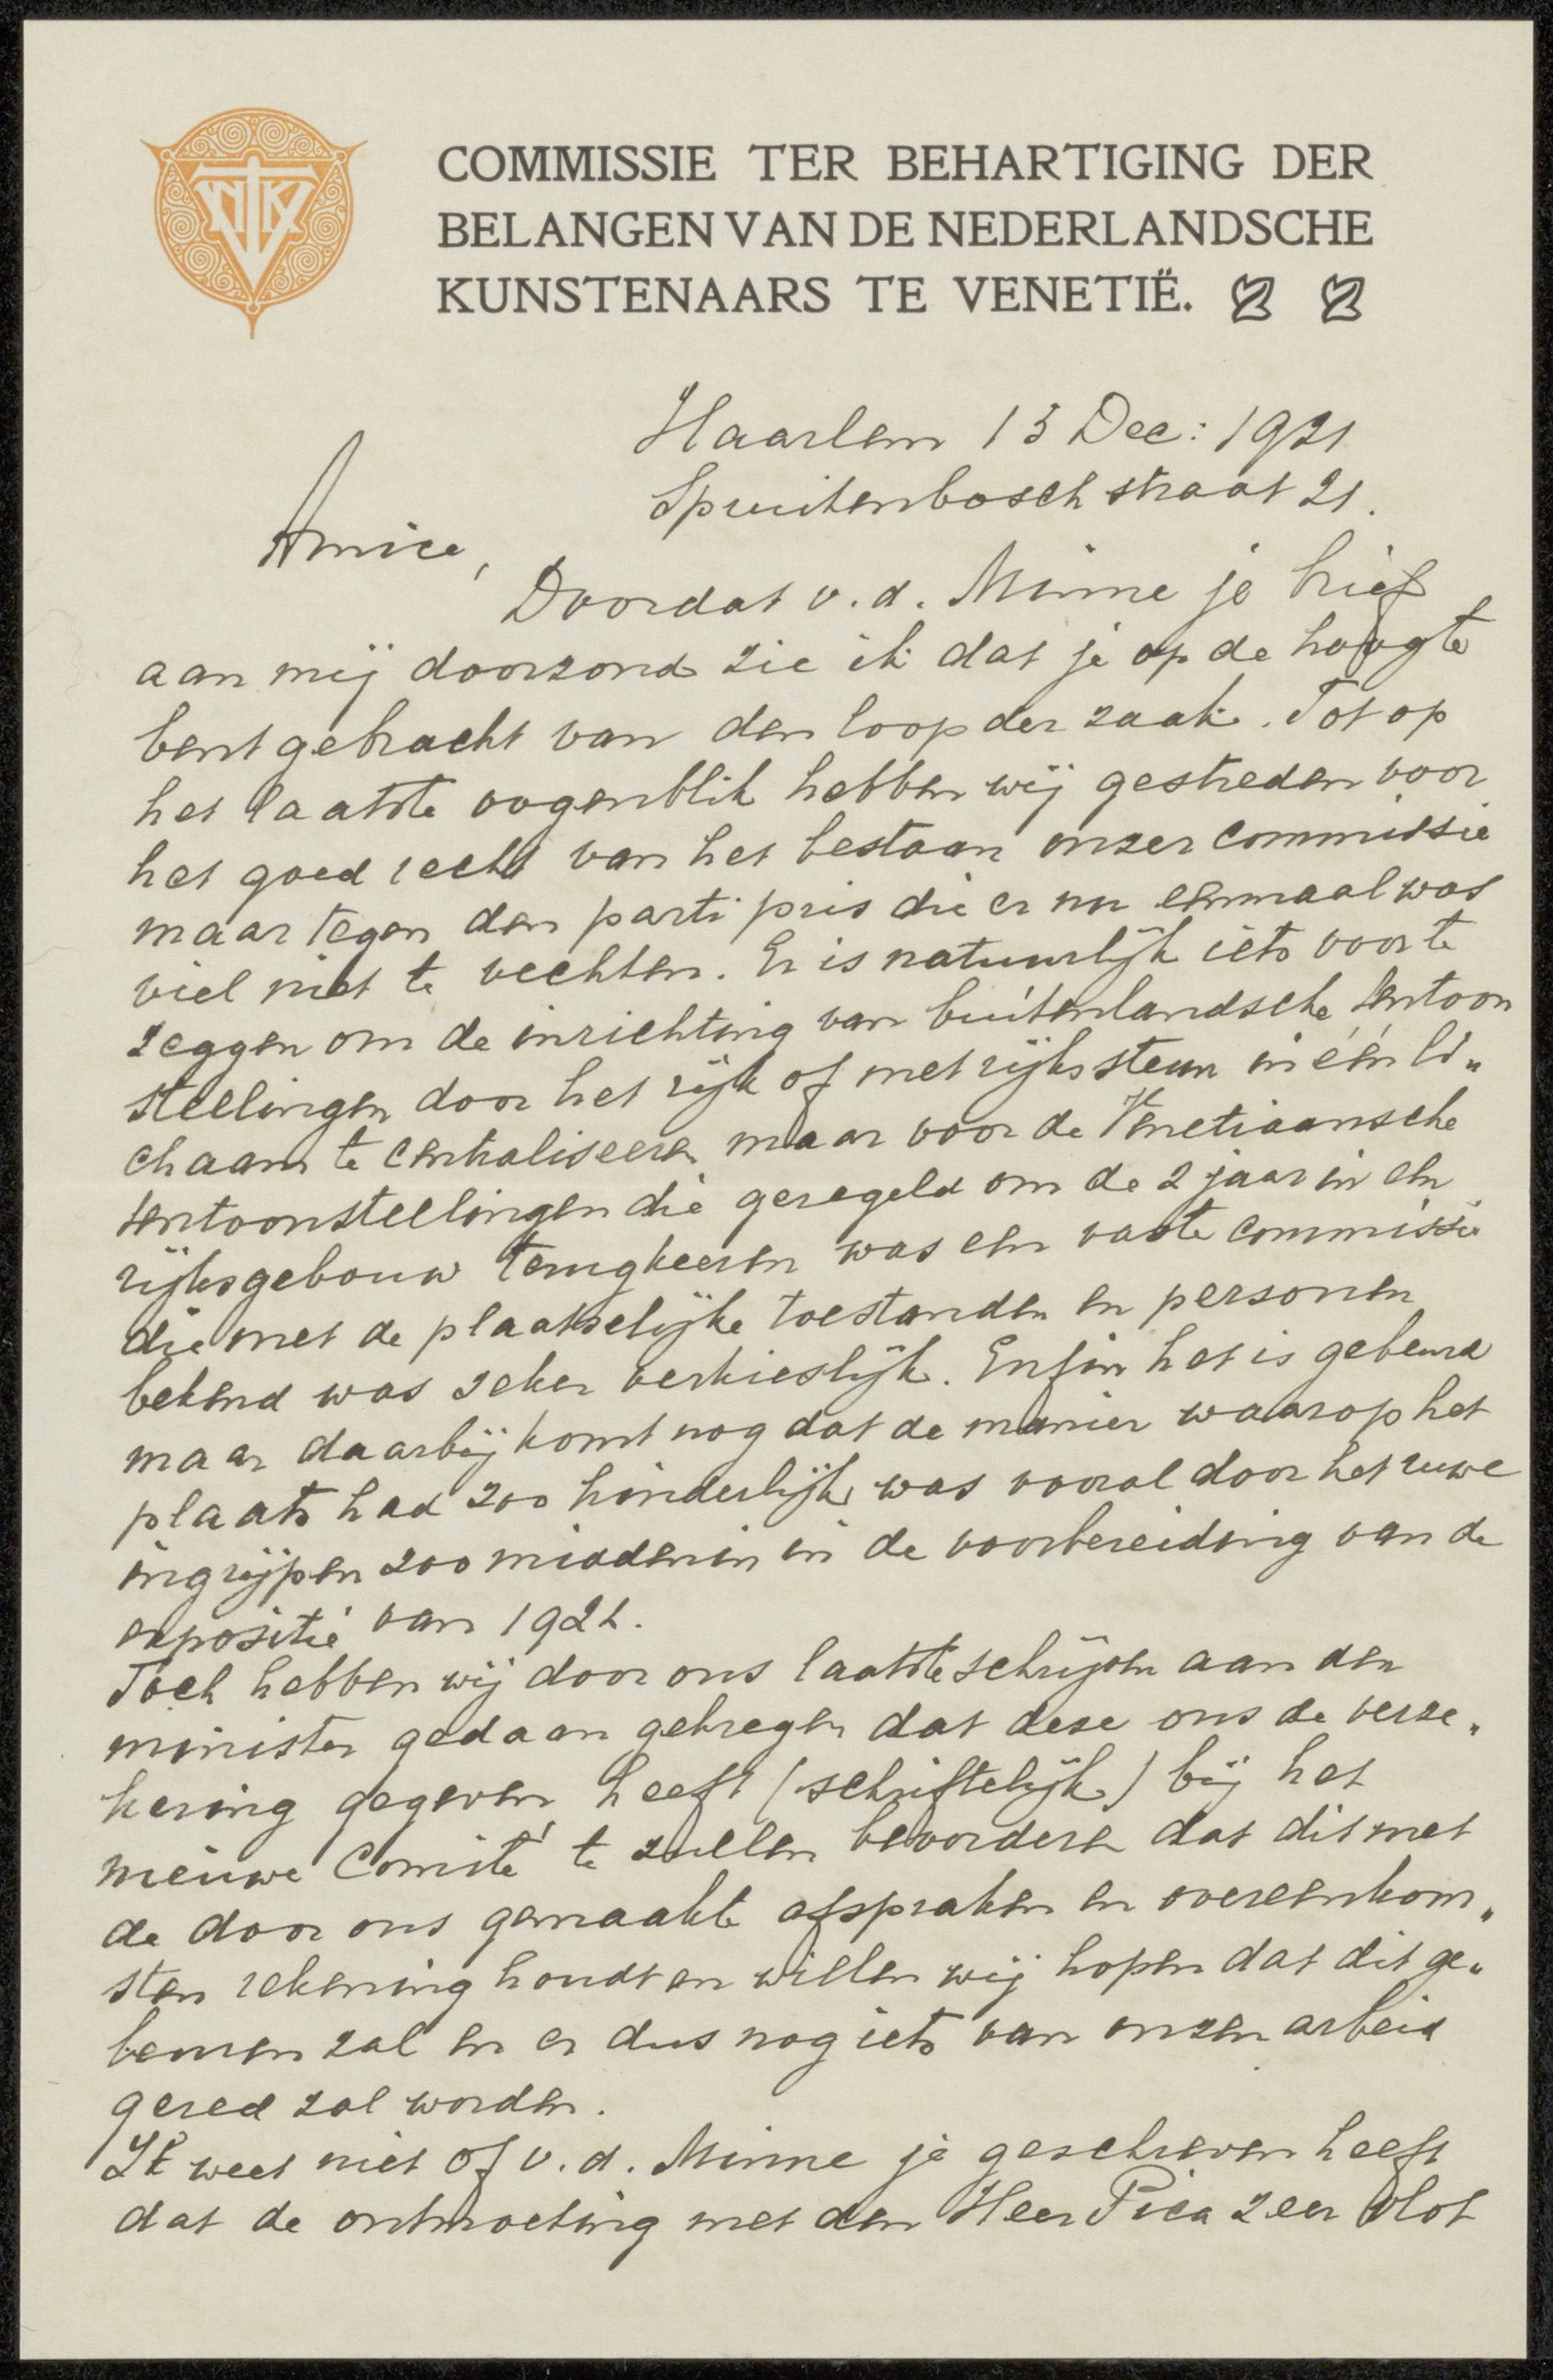 COMMISSIE TER BEHARTIGING DER
BELANGEN VAN DE NEDERLANDSCHE
KUNSTENAARS TE VENETIË.
Haarlem 13 Dec: 1921
Spruitenboschstraat 21.
Amice,
Doordat v.d. Minne je brief
aan mij doorzond zie ik dat je op de hoogte
bent gebracht van den loop der zaak. Tot op
het laatste oogenblik hebben wij gestreden voor
het goed recht van het bestaan onzer commissie
maar tegen den parti pris die er nu eenmaal was
viel niet te vechten. Er is natuurlijk iets voor te
zeggen om de inrichting van buitenlandsche tentoon
stellingen door het rijk of met rijkssteun in één li„
chaam te centraliseeren maar voor de Venetiaansche
tentoonstellingen die geregeld om de 2 jaar in een
rijksgebouw terugkeeren was een vaste commissie
die met de plaatselijke toestanden en personen
bekend was zeker verkieslijk. Enfin het is gebeurd
maar daarbij komt nog dat de manier waarop het
plaats had zoo hinderlijk was vooral door het ruwe
ingrijpen zoo middenin in de voorbereiding van de
expositie van 1921.
Toch hebben wij door ons laatste schrijven aan den
minister gedaan gekregen dat deze ons de verze„
kering gegeven heeft (schriftelijk) bij het
nieuwe Comité te zullen bevorderen dat dit met
de door ons gemaakte afspraken en overeenkom„
sten rekening houdt en willen wij hopen dat dit ge„
beuren zal en er dus nog iets van onzen arbeid
gered zal worden.
Ik weet niet of v.d. Minne je geschreven heeft
dat de ontmoeting met den Heer Pica zeer vlot